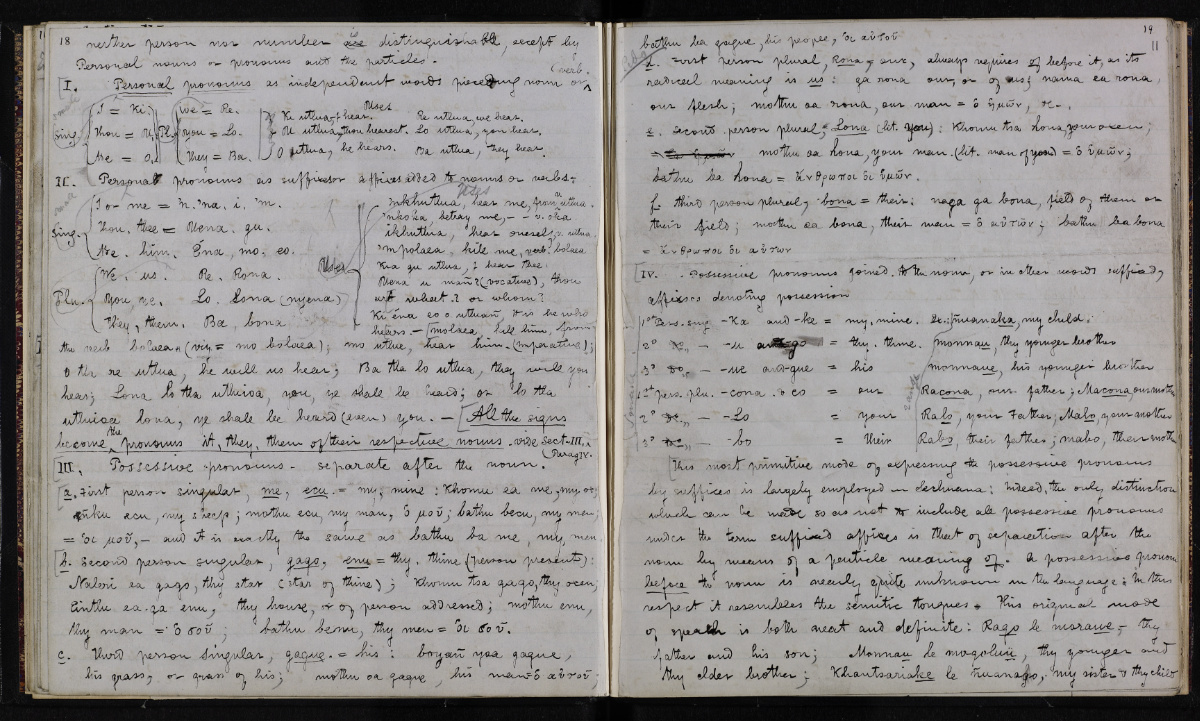 18
neither person nor number is distinguishable, except by
Personal nouns or pronouns and the particles.
I. Personal pronouns as independent words preceding noun or verb.
Sing. I = Ki. Plu. We = Re. Uses
Thou = U, You = Lo. Ki utlua, I hear. Re utlua, we hear.
He = O, They = Ba. U utlua, thou hearest. Lo utlua, you hear.
O utlua, he hears. Ba utlua, they hear.
II. Personal pronouns as suffixes or affixes added to nouns or verbs.
Uses
Sing. I or me = N. Na. i. m.
Thou, thee = Uena. gu.
He. him. Ena, mo. eo.
Plu. We. us. Re. Rona.
You ye. Lo. Lona (nyena)
They, them. Ba, bona
Uses
hear me, from utlua.
betray me, - v. oka
ikhutlua, hear oneself, v. utlua
mpolaea, kill me, verb. bolaea
Kia gu utlua, I hear thee.
Uena u mañ? (vocative), thou
art what? or whom?
Ki ena eo o utluañ, it is he who
hears. - molaea, kill him, from
the verb bolaea, (viz = mo bolaea); mo utlue, hear him. (imperative);
O tla re utlua, he will us hear; Ba tla lo utlua, they will you
hear; Lona lo tla utluioa, you, ye shall be heard; or lo tla
utluioa lona, ye shall be heard (even) you. - All the signs
become the pronouns it, they, them of their respective nouns. vide Sect. III,
Parag IV.
III. Possessive pronouns - separate after the noun.
a. First person singular, me, ecu. = my, mine: Khomu ea me, my ox;
ñku ecu, my sheep; mothu ecu, my man, ὁ μοῦ; bathu becu, my men;
= οἱ μοῦ, - and it is exactly the same as bathu ba me, my men.
b. Second person singular, gago, enu = thy. thine (person present):
Naleri ea gago, thy star (star of thine); Khomu tsa gago, thy oxen;
ea ga enu, thy house, or of person addressed; mothu enu,
thy man = ὁ σοῦ; bathu benu, thy men = οἱ σοῦ.
c. Third person Singular, gague. = his: boyañ yoa gague,
his grass, or grass of his; mothu oa gague, his man = ὁ αὐτοῦ;
19
11
bathu ba gague, his people, οἱ αὐτοῦ
d. First person plural, Rona = our, always requires of before it, as its
radical meaning is us: ga rona our, or of us; nama ea rona,
our flesh; mothu oa rona, our man = ὁ ἡμῶν, &c.
e. Second person plural, Lona (lit. you): Khomu tsa lona, your oxen;
mothu oa lona, your man. (lit. man of you) = ὁ ὑμῶν;
bathu ba lona = ἄνθρωποι οἱ ὑμῶν.
f. third person plural, bona = their: naga ga bona, field of them or
their field; mothu oa bona, their man = ὁ αὐτῶν; bathu ba bona
= ἄνθρωποι οἱ αὐτῶν
IV. Possessive pronouns joined to the noun, or in other words suffixed,
affixes denoting possession
1º Pers. sing -ka and -ke = my, mine. ñuanaka, my child.
2º Do. - -u = thy. thine. monnau, thy younger brother
3º Do. - -ue and -gue = his monnaue, his younger brother
1st pers. plu. -cona. o co = our Racona, our father; Macona, our mother
2º Do. - -Lo = your Ralo, your father, Malo, your mother
3º Do. - -bo = their Rabo, their father; mabo, their mother
This most primitive mode of expressing the possessive pronouns
by suffixes is largely employed in Sechuana: Indeed, the only distinction
which can be made so as not to include all possessive pronouns
under the term suffixed affixes is that of separation after the
noun by means of a particle meaning of. A possessive pronoun
before the noun is nearly quite unknown in the language: In this
respect it resembles the semitic tongues. This original mode
of speech is both neat and definite: Rago le moraue, thy
father and his son; Monnau le mogoluue, thy younger and
thy elder brother; Khantsariake le ñuanago, my sister & thy child